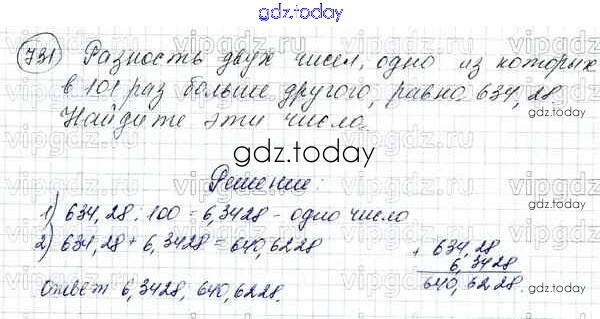 gdz.today
731) Разность двух чисел, одно из которых
в 101 раз больше другого, равно 634,28
Найдите эти числа.
gdz.today
Решение:
1) 634,28 : 100 = 6,3428 - одно число
2) 634,28 + 6,3428 = 640,6228
+ 634,28
6,3428
640,6228.
Ответ 6,3428, 640,6228.
gdz.today